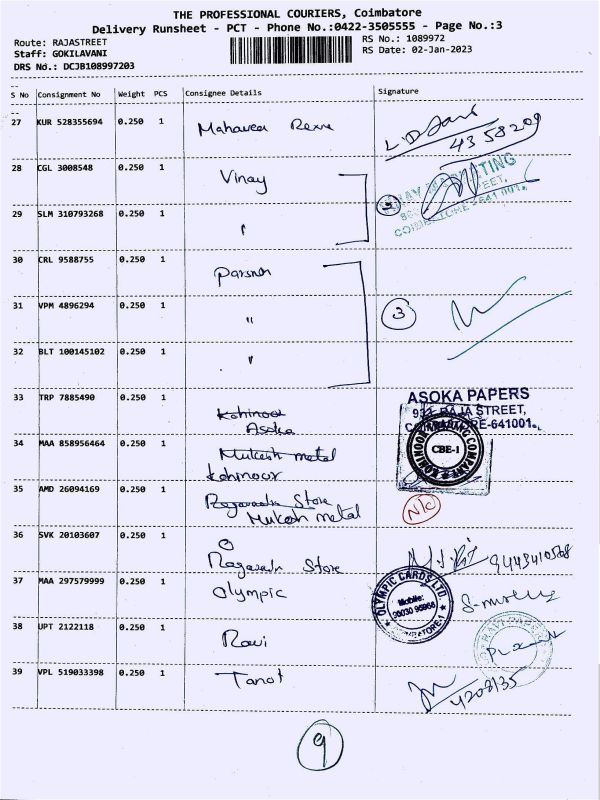 THE PROFESSIONAL COURIERS, Coimbatore
Delivery Runsheet - PCT - Phone No.:0422-3505555 - Page No.:3
Route: RAJASTREET
RS No.: 1089972
Staff: GOKILAVANI
RS Date: 02-Jan-2023
DRS No.: DCJB108997203
S No Consignment No Weight PCS Consignee Details Signature
27 KUR 528355694 0.250 1 Mahaveer
4358209
28 CGL 3008548 0.250 1 Vinay
29 SLM 310793268 0.250 1 "
30 CRL 9588755 0.250 1
31 VPM 4896294 0.250 1 " 3
32 BLT 100145102 0.250 1 "
33 TRP 7885490 0.250 1 Kohinoor
Asoka
ASOKA PAPERS
RAJA STREET,
COIMBATORE-641001.
34 MAA 858956464 0.250 1 Mukesh metal
Kohinoor
KOHINOOR TRADING COMPANY
CBE-1
35 AMD 26094169 0.250 1 Store
Mukesh metal
N/C
36 SVK 20103607 0.250 1
Store
37 MAA 297579999 0.250 1 Olympic
OLYMPIC CARDS LTD.
Mobile:
COIMBATORE-1
38 UPT 2122118 0.250 1 Ravi
39 VPL 519033398 0.250 1 Tanot
4208135
9